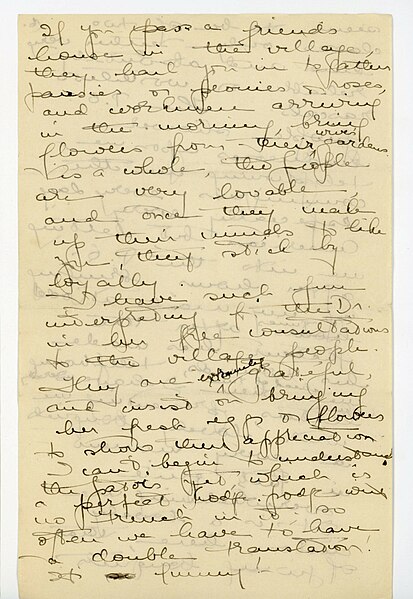 If you pass a friends
house in the village
they hail you in to gather
pansies or peonies or roses,
and workmen arriving
in the morning bring
flowers from their wives gardens.
As a whole, the people
are very lovable
and once they make
up their minds to like
you, they stick by
loyally.
I have such fun
interpreting for the Dr.
in her free consultations
to the village people.
They are so grateful,
and insist on bringing
her fresh eggs or flowers
to show their appreciation.
I can't begin to understand
the patois yet which is
a perfect hodge-podge with
no French in it so
often we have to have
a double translation!
It funny!